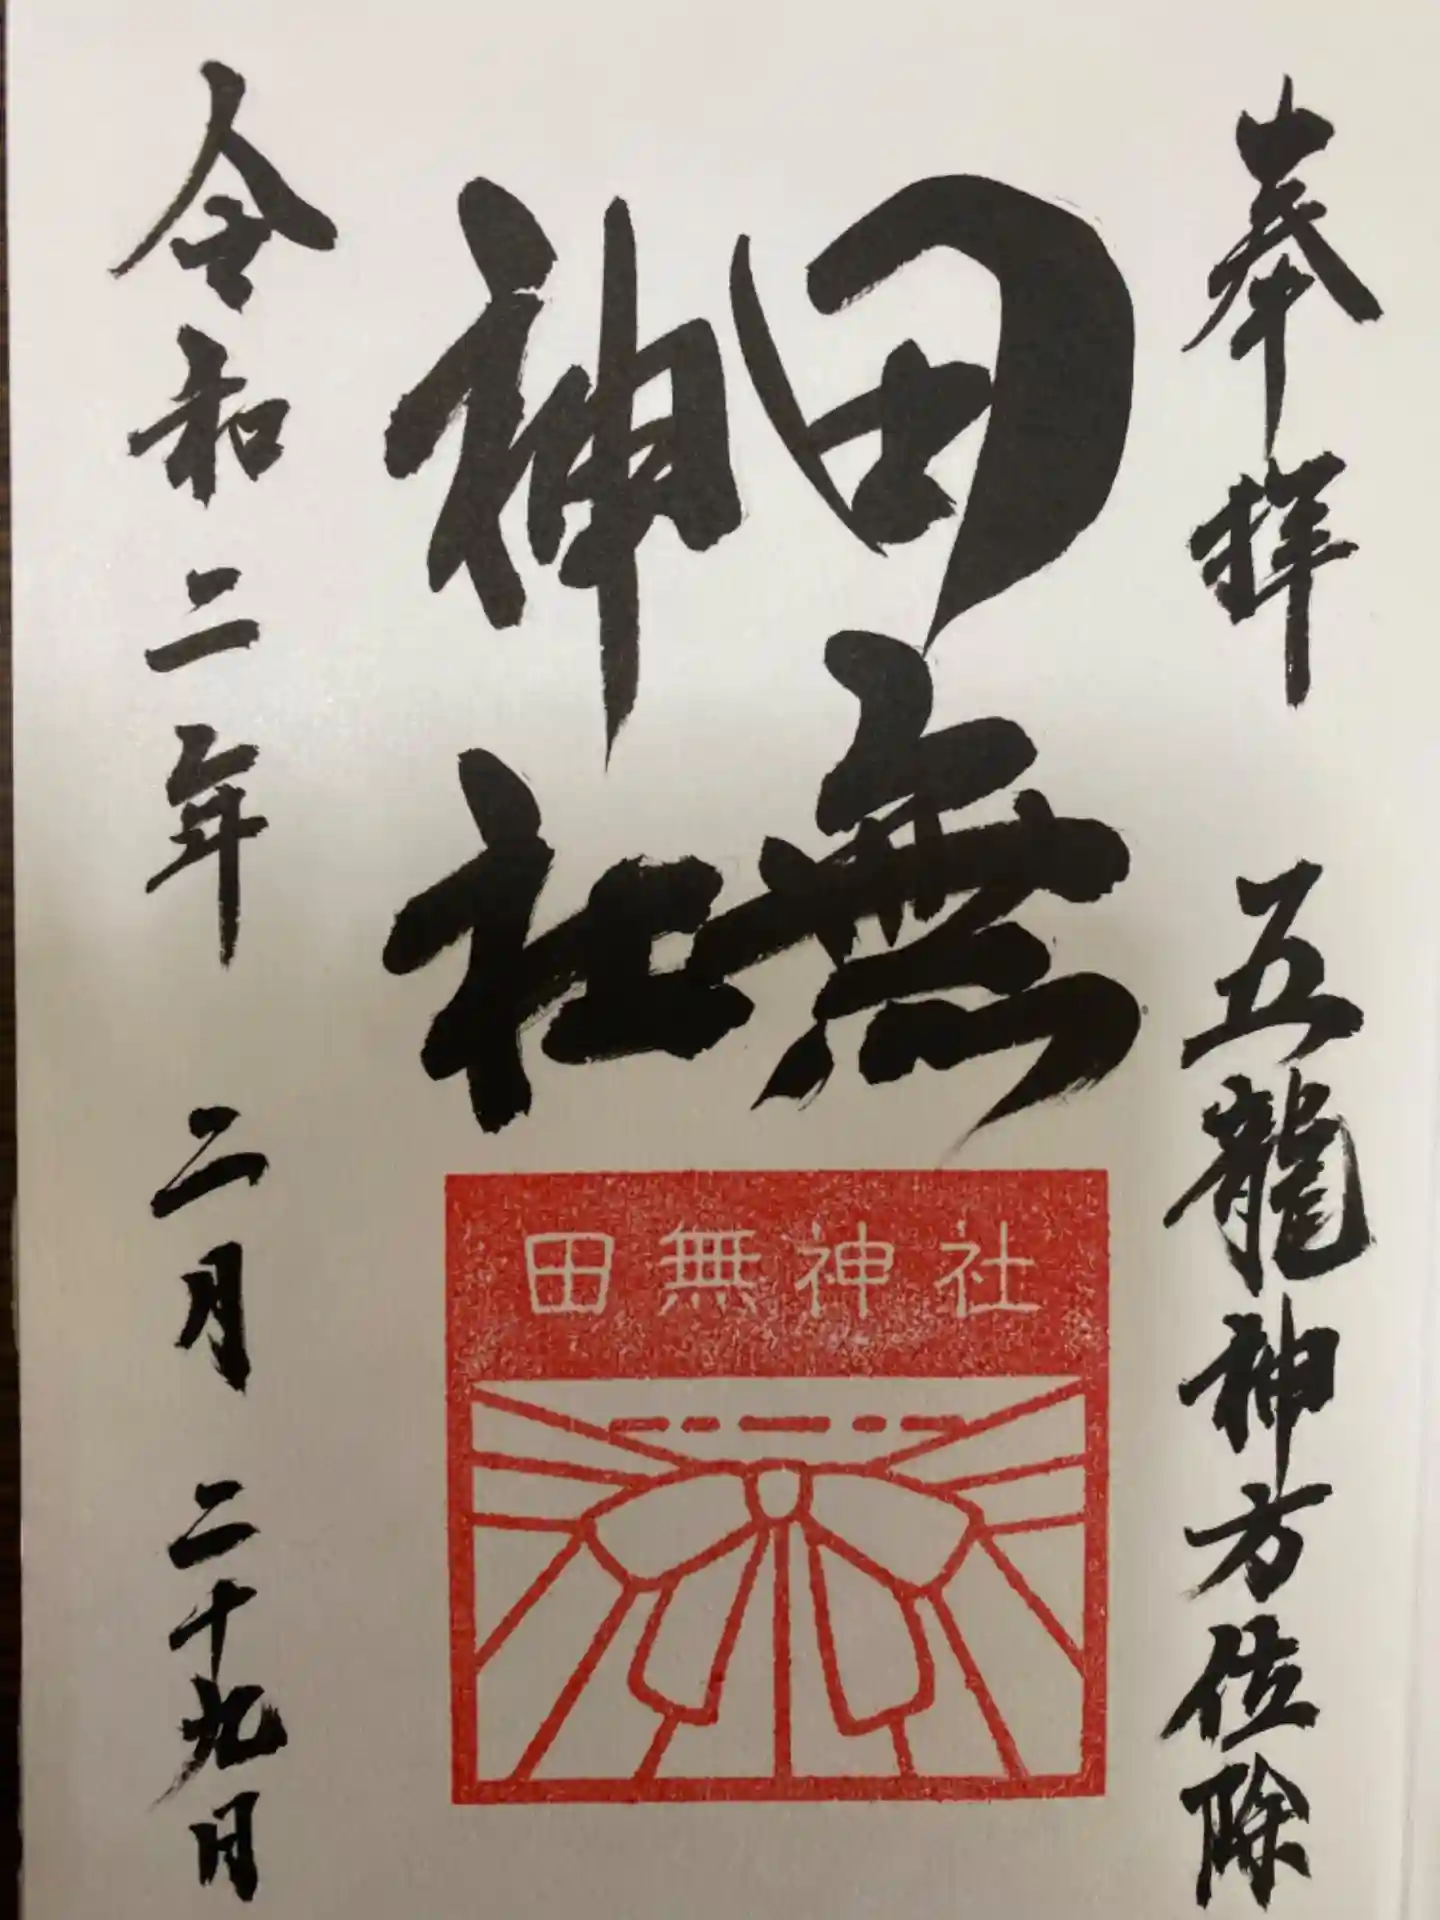 奉拝 五龍神方位除
田無
神社
田無神社
令和二年 二月 二十九日